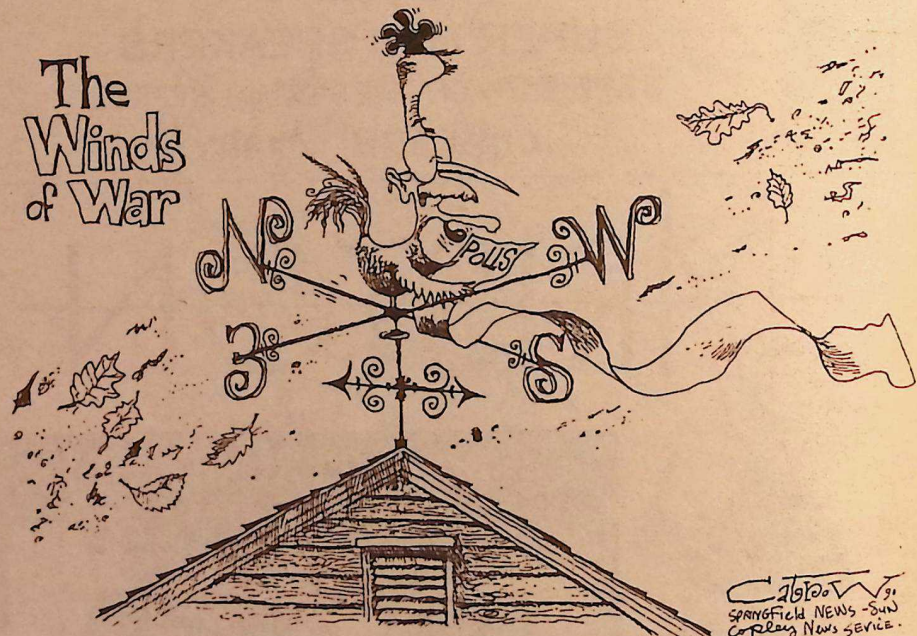 The
Winds
of War
N
W
POLLS
E
S
CATROW 90
SPRINGFIELD NEWS-SUN
COPLEY NEWS SERVICE.